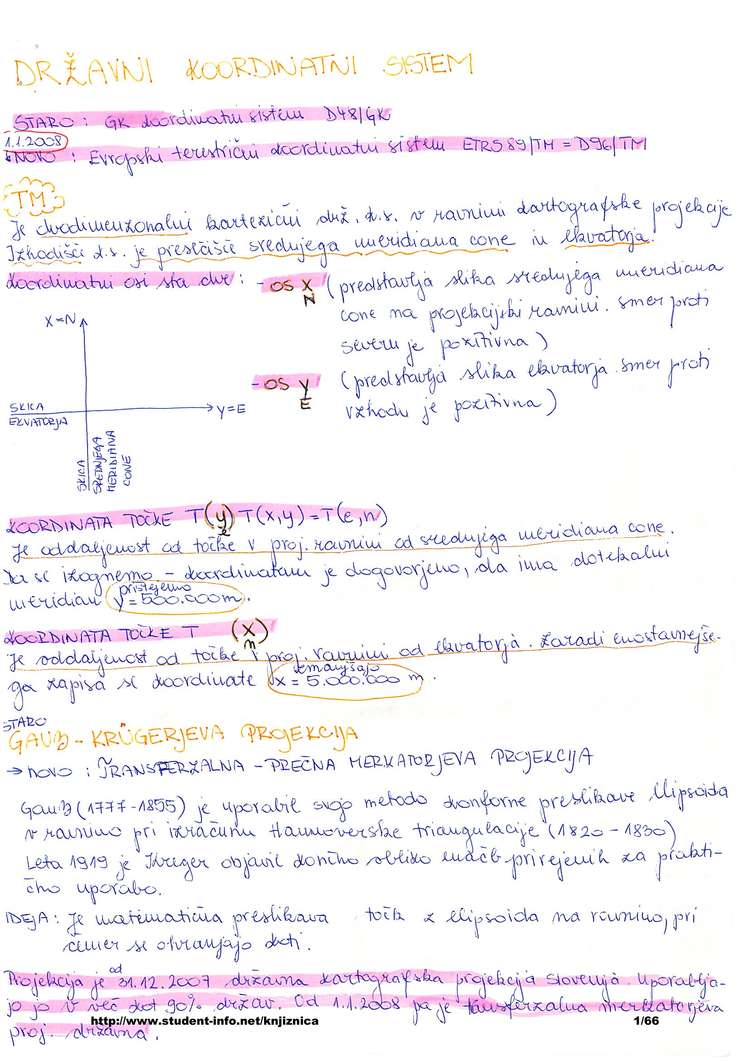 DRŽAVNI KOORDINATNI SISTEM
STARO: GK koordinatni sistem D48/GK
1.1.2008
NOVO: Evropski terestrični koordinatni sistem ETRS 89/TM = D96/TM
TM
Je dvodimenzonalni kartezični drž. k.s. v ravnini kartografske projekcije
Izhodišči k.s. je presečišče srednjega meridiana cone in ekvatorja.
Koordinatni osi sta dve: - OS X (predstavlja slika srednjega meridiana
N
cone na projekcijski ravnini. smer proti
severu je pozitivna)
- OS Y (predstavlja slika ekvatorja. smer proti
E
vzhodu je pozitivna)
X=N
y=E
SLICA
EKVATORJA
SLICA
SREDNJEGA
MERIDIANA
CONE
KOORDINATA TOČKE T(y) T(x,y)=T(e,n)
Je oddaljenost od točke v proj. ravnini od srednjega meridiana cone.
se izognemo - koordinatam je dogovorjeno, da ima dotekalni
prištejemo
meridian y=500.000m.
KOORDINATA TOČKE T (x)
n
Je oddaljenost od točke v proj. ravnini od ekvatorja. Zaradi enostavnejše-
zmanjšajo
ga zapisa se koordinate x = 5.000.000 m.
STARO
GAUß-KRÜGERJEVA PROJEKCIJA
→ novo: TRANSFERZALNA - PREČNA MERKATORJEVA PROJEKCIJA
Gauß (1777-1855) je uporabil svojo metodo konforne preslikave elipsoida
v ravnino pri izračunu Hannoverske triangulacije (1820-1830)
Leta 1919 je Krüger objavil končno obliko enačb prirejenih za prakti-
čno uporabo.
IDEJA: Je matematična preslikava točk z elipsoida na ravnino, pri
čemer se ohranjajo koti.
od
Projekcija je 31.12.2007 državna kartografska projekcija Slovenija. Uporablja-
jo jo v več kot 90% držav. Od 1.1.2008 pa je transferzalna merkatorjeva
proj. državna.
http://www.student-info.net/knjiznica
1/66